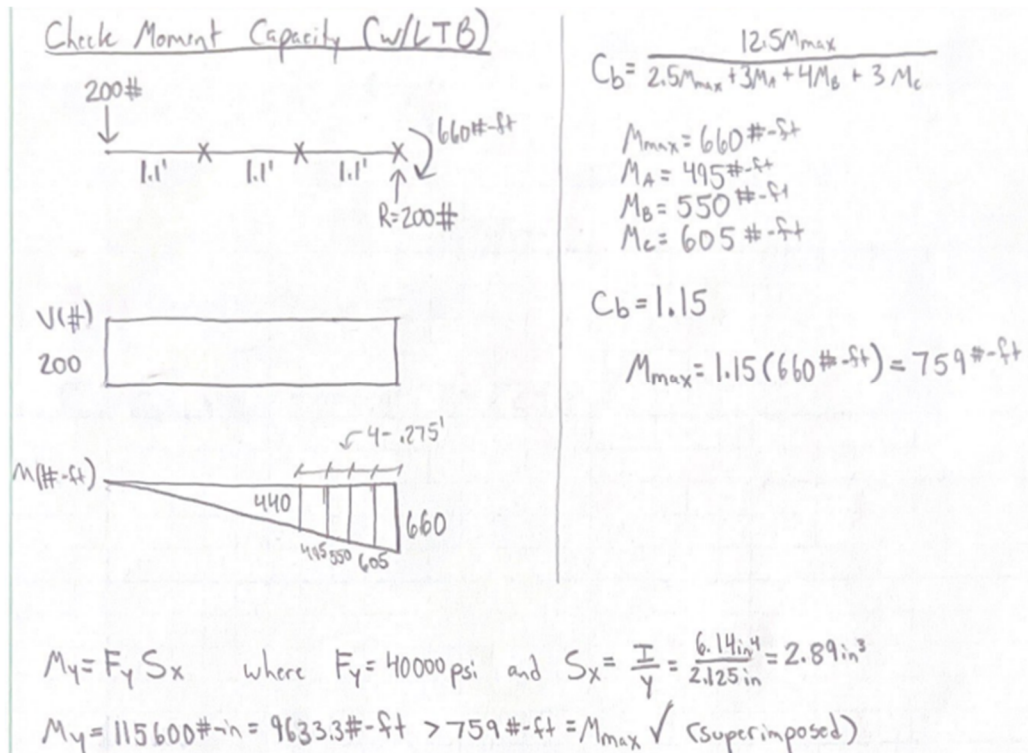 Check Moment Capacity (w/LTB)
200#
1.1' 1.1' 1.1'
660#-ft
R=200#
V(#)
200
4-.275'
M(#-ft)
440
660
495 550 605
Cb = 12.5Mmax / 2.5Mmax + 3MA + 4MB + 3Mc
Mmax = 660#-ft
MA = 495#-ft
MB = 550#-ft
Mc = 605#-ft
Cb = 1.15
Mmax = 1.15(660#-ft) = 759#-ft
My = FySx where Fy = 40000psi and Sx = I/y = 6.14in⁴/2.125in = 2.89in³
My = 115600#-in = 9633.3#-ft > 759#-ft = Mmax ✓ (superimposed)